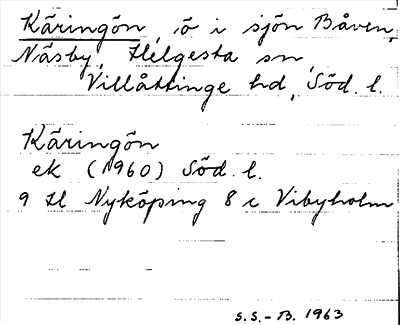 Käringön, ö i sjön Båven,
Näsby, Helgesta sn,
Villåttinge hd, Söd. l.
Käringön
ek (1960) Söd. l.
9 H Nyköping 8 c Vibyholm
S.S.-B. 1963